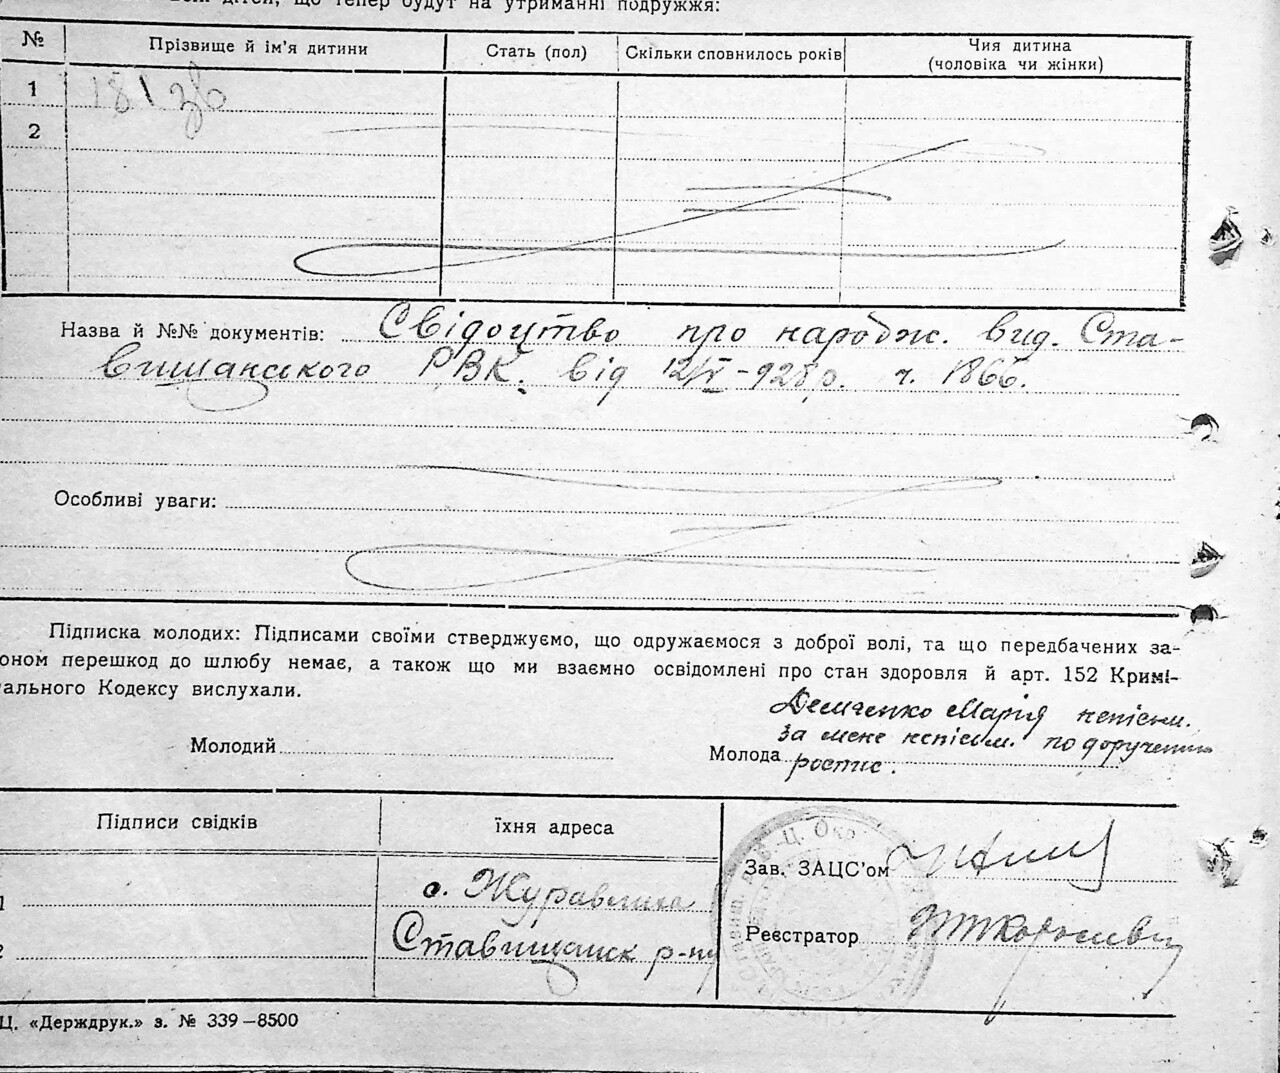 дітей, що тепер будуть на утриманні подружжя:
№ Прізвище й ім'я дитини Стать (пол) Скільки сповнилось років Чия дитина (чоловіка чи жінки)
1 181 зв
2
Назва й №№ документів: Свідоцтво про народж. вид. Ста-
вищанського РВК. від 12/IV-928р. ч. 1866.
Особливі уваги:
Підписка молодих: Підписами своїми стверджуємо, що одружаємося з доброї волі, та що передбачених за-
оном перешкод до шлюбу немає, а також що ми взаємно освідомлені про стан здоров'я й арт. 152 Кримі-
ального Кодексу вислухали.
Демченко Марія неписьм.
За мене неписьм. по доручению
Молодий Молода ростис.
Підписи свідків їхня адреса
Ц. Окр
Зав. ЗАЦС'ом
1 с. Журавлиха
Реєстратор
2 Ставищанск р-ну
Ц. «Держдрук.» з. № 339-8500